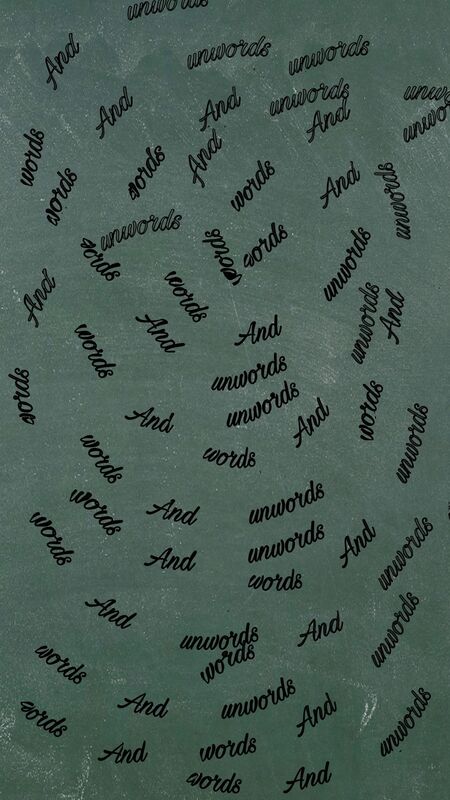 unwords
And
unwords
unwords
And
And
unwords
And
unwords
unwords
words
words
words
And
words
And
unwords
words
unwords
words
words
unwords
And
words
And
And
unwords
And
words
unwords
words
And
unwords
And
words
unwords
words
words
words
And
unwords
words
And
unwords
And
unwords
words
And
unwords
And
unwords
words
words
And
unwords
And
unwords
words
And
words
words
And